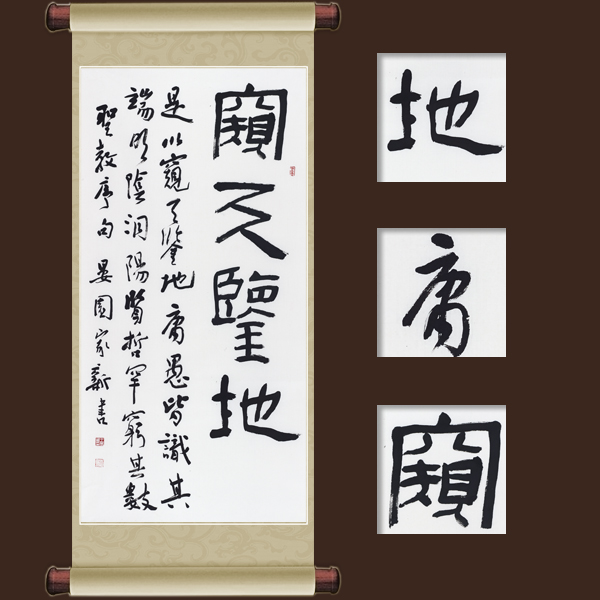 窺天鑒地
是以窺天鑒地庸愚皆識其
端明陰洞陽賢哲罕窮其數
聖教序句 晏園家新書
地
庸
窺